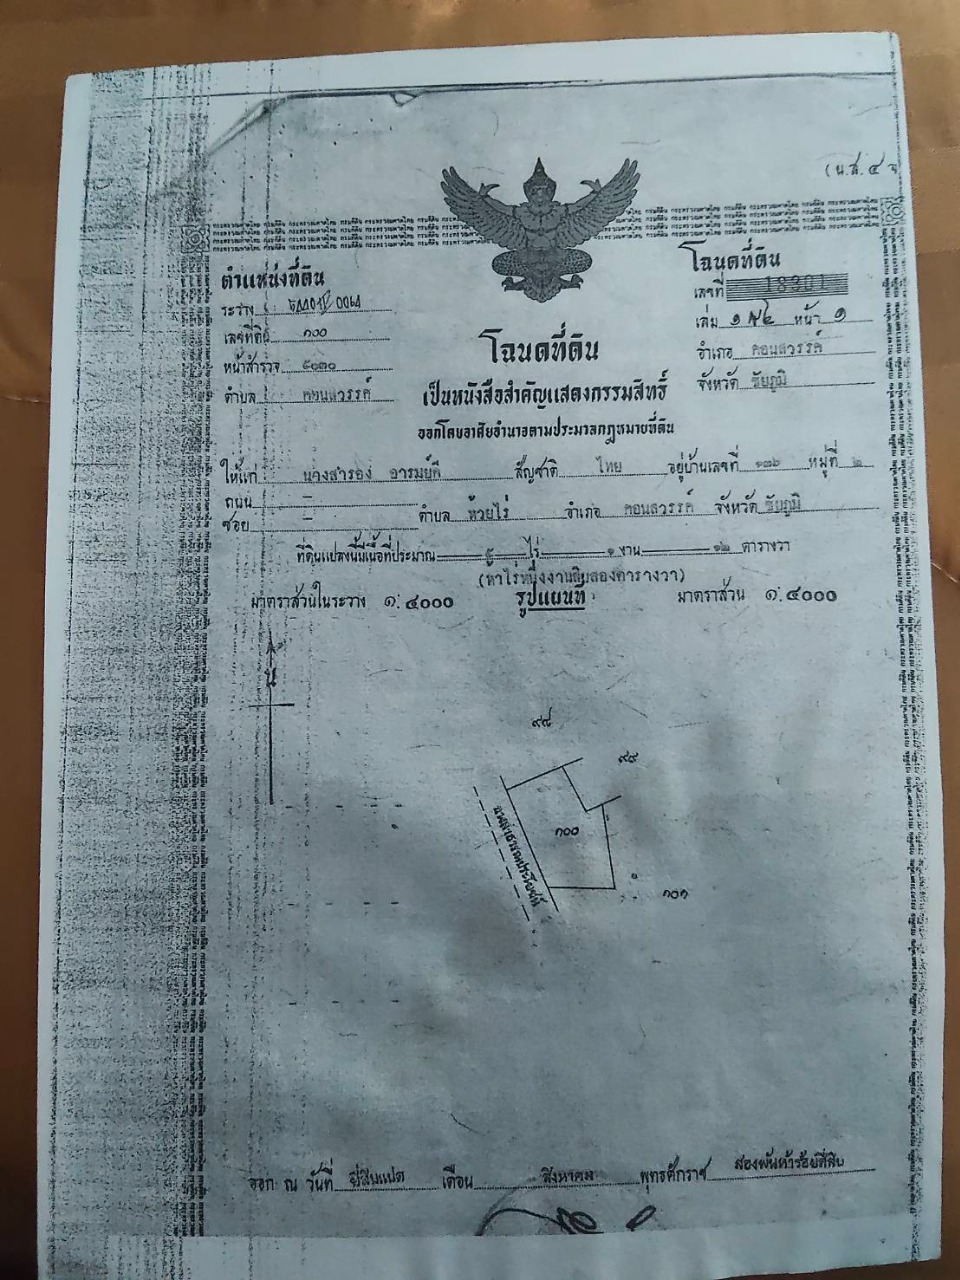 (น.ส. ๔
ตำแหน่งที่ดิน
ระวาง
เลขที่ดิน ๑๐๐
หน้าสำรวจ
ตำบล คอนสวรรค์
โฉนดที่ดิน
เลขที่ 18301
เล่ม หน้า ๑
อำเภอ คอนสวรรค์
จังหวัด ชัยภูมิ
โฉนดที่ดิน
เป็นหนังสือสำคัญแสดงกรรมสิทธิ์
ออกโดยอาศัยอำนาจตามประมวลกฎหมายที่ดิน
ให้แก่ นางสำรอง อารมย์ดี สัญชาติ ไทย อยู่บ้านเลขที่ ๑๓๖ หมู่ที่ ๒
ถนน —
ซอย — ตำบล ห้วยไร่ อำเภอ คอนสวรรค์ จังหวัด ชัยภูมิ
ที่ดินแปลงนี้มีเนื้อที่ประมาณ ๕ ไร่ ๑ งาน ๑๒ ตารางวา
(ห้าไร่หนึ่งงานสิบสองตารางวา)
มาตราส่วนในระวาง ๑:๔๐๐๐ รูปแผนที่ มาตราส่วน ๑:๔๐๐๐
น
๙๘
๙๙
๑๐๐
ทางสาธารณประโยชน์
๑๐๑
ออก ณ วันที่ ยี่สิบแปด เดือน สิงหาคม พุทธศักราช สองพันห้าร้อยสี่สิบ